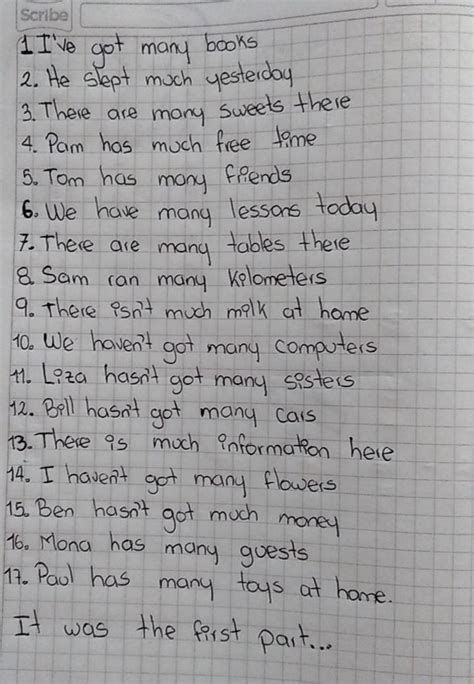 Scribe
1 I've got many books
2. He slept much yesterday
3. There are many sweets there
4. Pam has much free time
5. Tom has many friends
6. We have many lessons today
7. There are many tables there
8. Sam ran many kilometers
9. There isn't much milk at home
10. We haven't got many computers
11. Liza hasn't got many sisters
12. Bill hasn't got many cars
13. There is much information here
14. I haven't got many flowers
15. Ben hasn't got much money
16. Mona has many guests
17. Paul has many toys at home.
It was the first part...